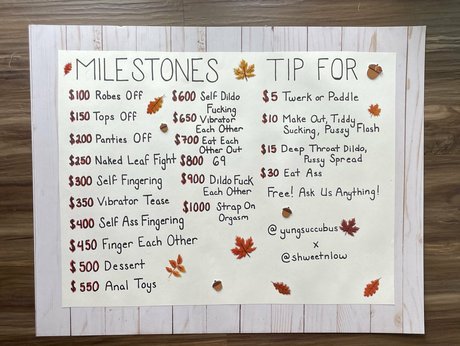 MILESTONES
$100 Robes Off
$150 Tops Off
$200 Panties Off
$250 Naked Leaf Fight
$300 Self Fingering
$350 Vibrator Tease
$400 Self Ass Fingering
$450 Finger Each Other
$500 Dessert
$550 Anal Toys
$600 Self Dildo
Fucking
$650 Vibrator
Each Other
$700 Eat Each
Other Out
$800 69
$900 Dildo Fuck
Each Other
$1000 Strap On
Orgasm
TIP FOR
$5 Twerk or Paddle
$10 Make Out, Tiddy
Sucking, Pussy Flash
$15 Deep Throat Dildo,
Pussy Spread
$30 Eat Ass
Free! Ask Us Anything!
@yungsuccubus
x
@shweetnlow